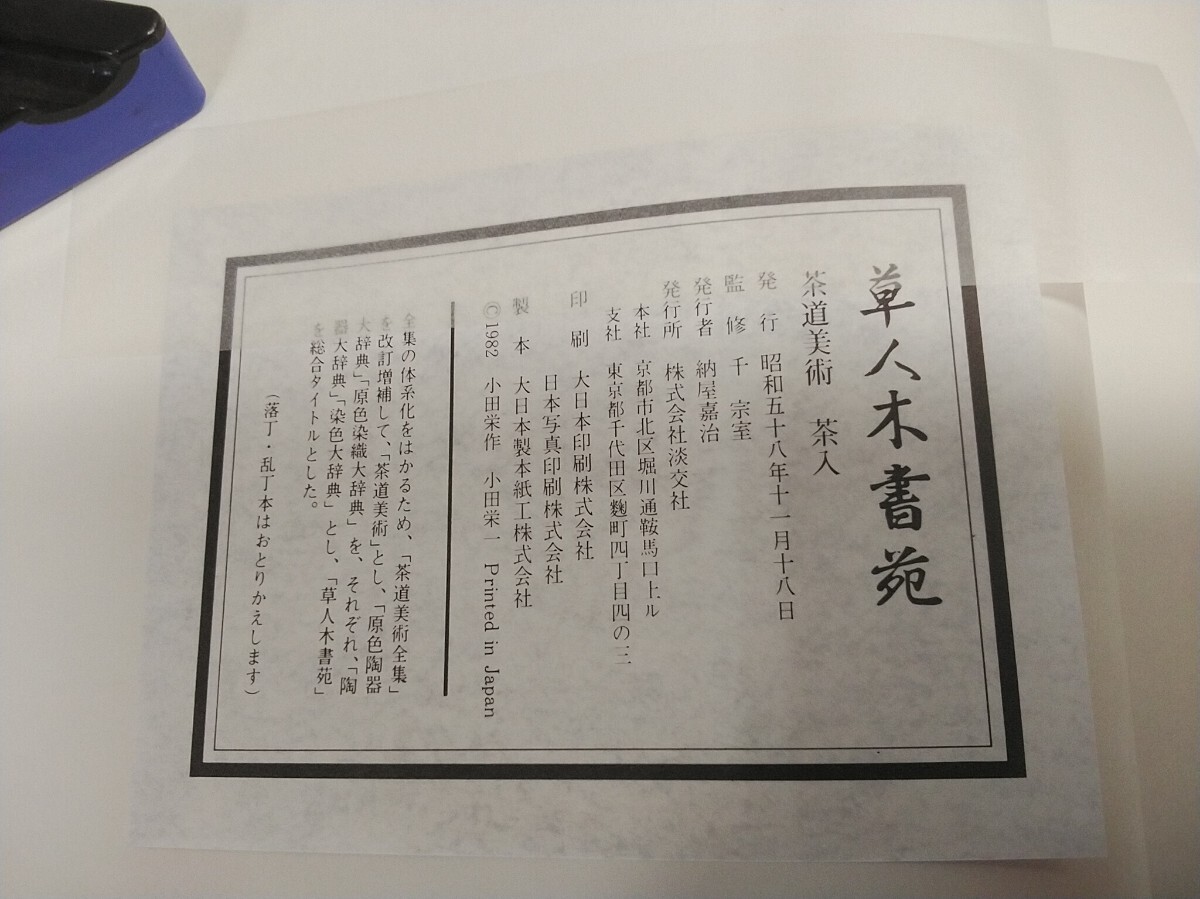 草人木書苑
茶道美術 茶入
発行 昭和五十八年十一月十八日
監修 千 宗室
発行者 納屋嘉治
発行所 株式会社淡交社
本社 京都市北区堀川通鞍馬口上ル
支社 東京都千代田区麴町四丁目四の三
印刷 大日本印刷株式会社
日本写真印刷株式会社
製本 大日本製本紙工株式会社
©1982 小田栄作 小田栄一 Printed in Japan
全集の体系化をはかるため、「茶道美術全集」
を改訂増補して、「茶道美術」とし、「原色陶器
大辞典」「原色染織大辞典」を、それぞれ、「陶
器大辞典」「染色大辞典」とし、「草人木書苑」
を総合タイトルとした。
(落丁・乱丁本はおとりかえします)